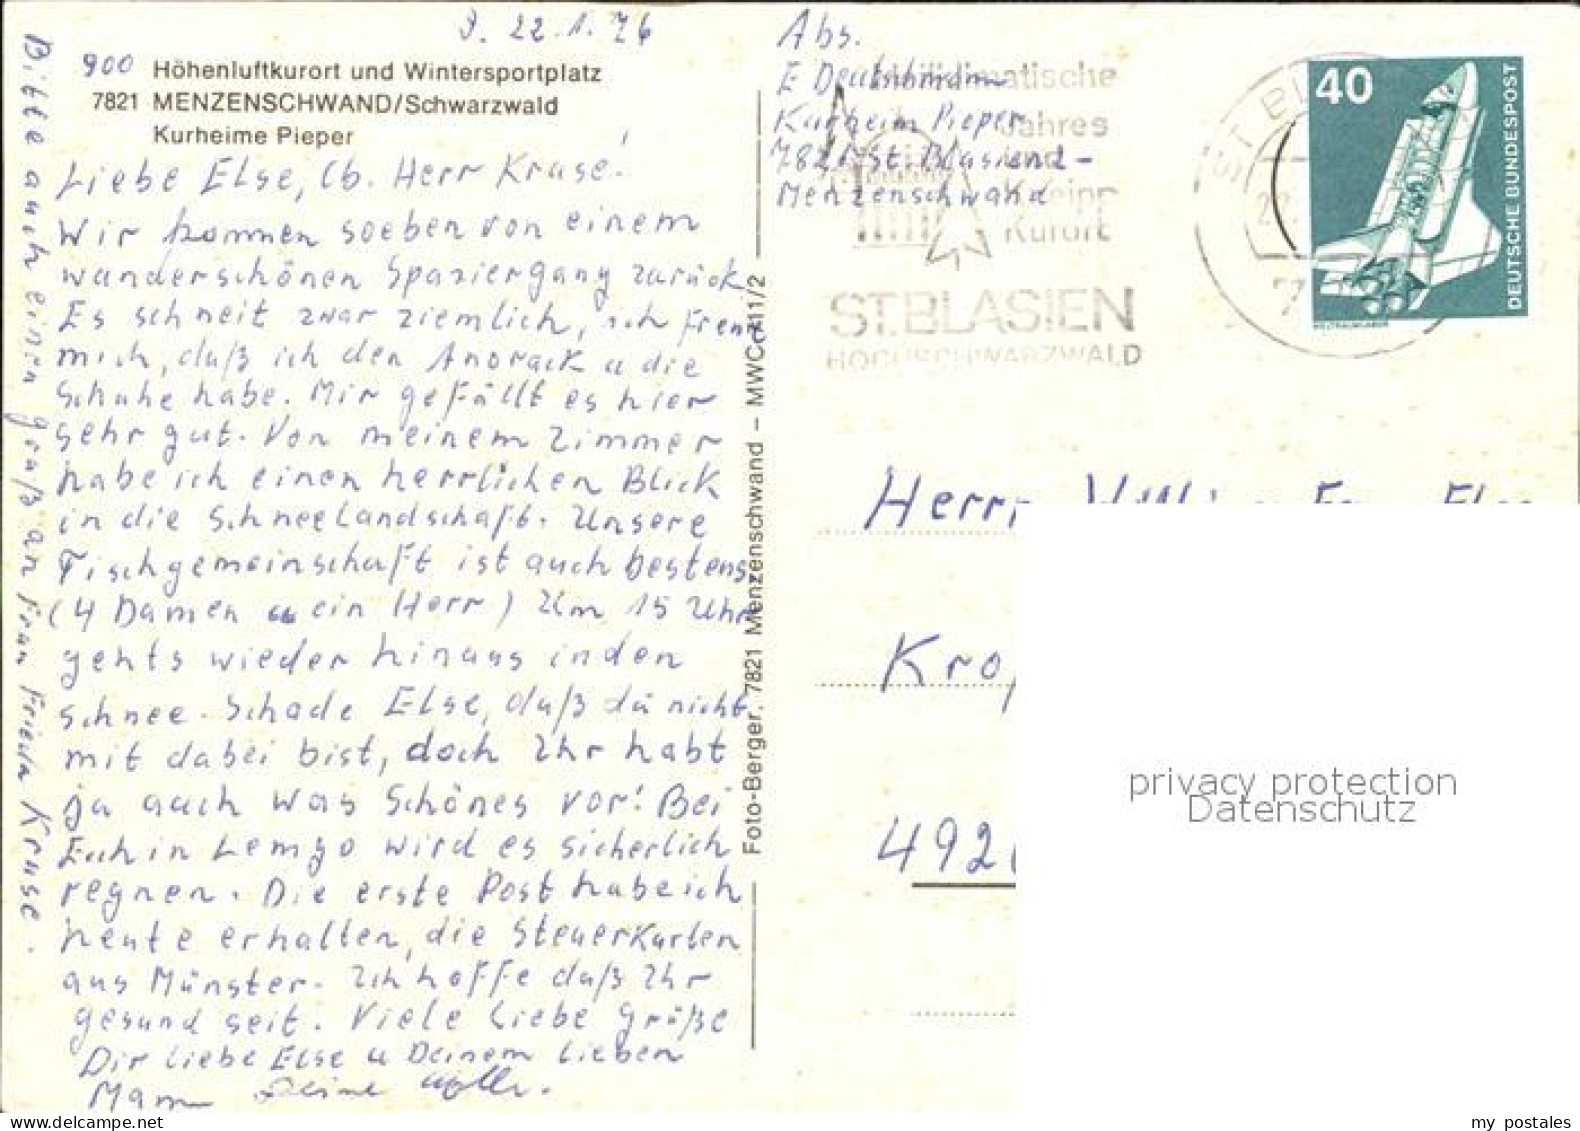 D. 22.1.76
900 Höhenluftkurort und Wintersportplatz
7821 MENZENSCHWAND/Schwarzwald
Kurheime Pieper
Liebe Else, lb. Herr Kruse!
Wir kommen soeben von einem
wunderschönen Spaziergang zurück
Es schneit zwar ziemlich, ich freue
mich, daß ich den Anorack u die
Schuhe habe. Mir gefällt es hier
sehr gut. Von meinem Zimmer
habe ich einen herrlichen Blick
in die Schneelandschaft. Unsere
Tischgemeinschaft ist auch bestens
(4 Damen u ein Herr) Um 15 Uhr
gehts wieder hinaus in den
Schnee. Schade Else, daß du nicht
mit dabei bist, doch Ihr habt
ja auch was Schönes vor! Bei
Euch in Lemgo wird es sicherlich
regnen. Die erste Post habe ich
heute erhalten, die Steuerkarten
aus Münster. Ich hoffe daß Ihr
gesund seit. Viele liebe Grüße
Dir liebe Else u Deinem lieben
Mann Deine
Bitte auch einen gruß an Frau Frieda Kruse.
Foto-Berger, 7821 Menzenschwand – MWC 411/2
Abs.
E
Kurheim Pieper
7821 St. Blasien 2-
Menzenschwand
Jahres
und
Kneipp
Kurort
ST.BLASIEN
HOCHSCHWARZWALD
ST BL
40
DEUTSCHE BUNDESPOST
WELTRAUMLABOR
Herrn Willi u. Frau Else
Kro
492
privacy protection
Datenschutz
my postales